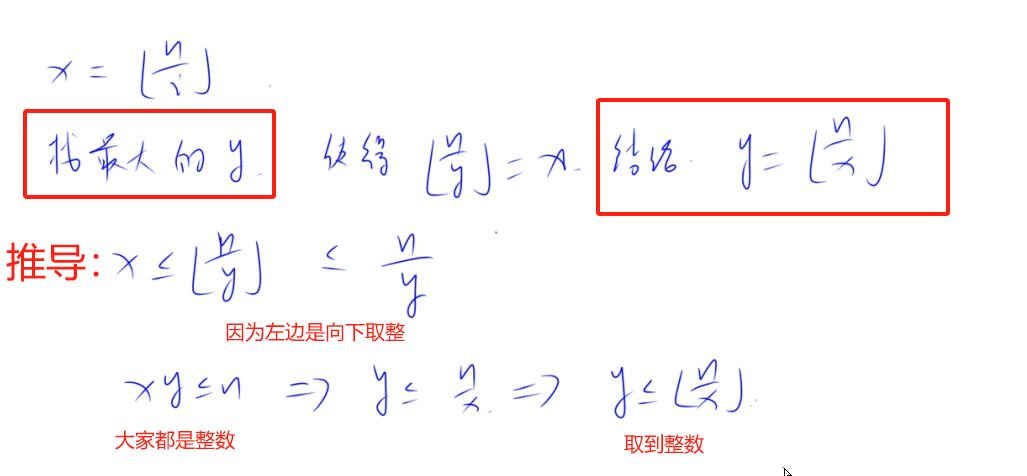 x = ⌊n/i⌋
找最大的 y. 使得 ⌊n/y⌋ = x. 结论. y = ⌊n/x⌋
推导: x ≤ ⌊n/y⌋ ≤ n/y
因为左边是向下取整
xy ≤ n ⇒ y ≤ n/x. ⇒ y ≤ ⌊n/x⌋.
大家都是整数 取到整数